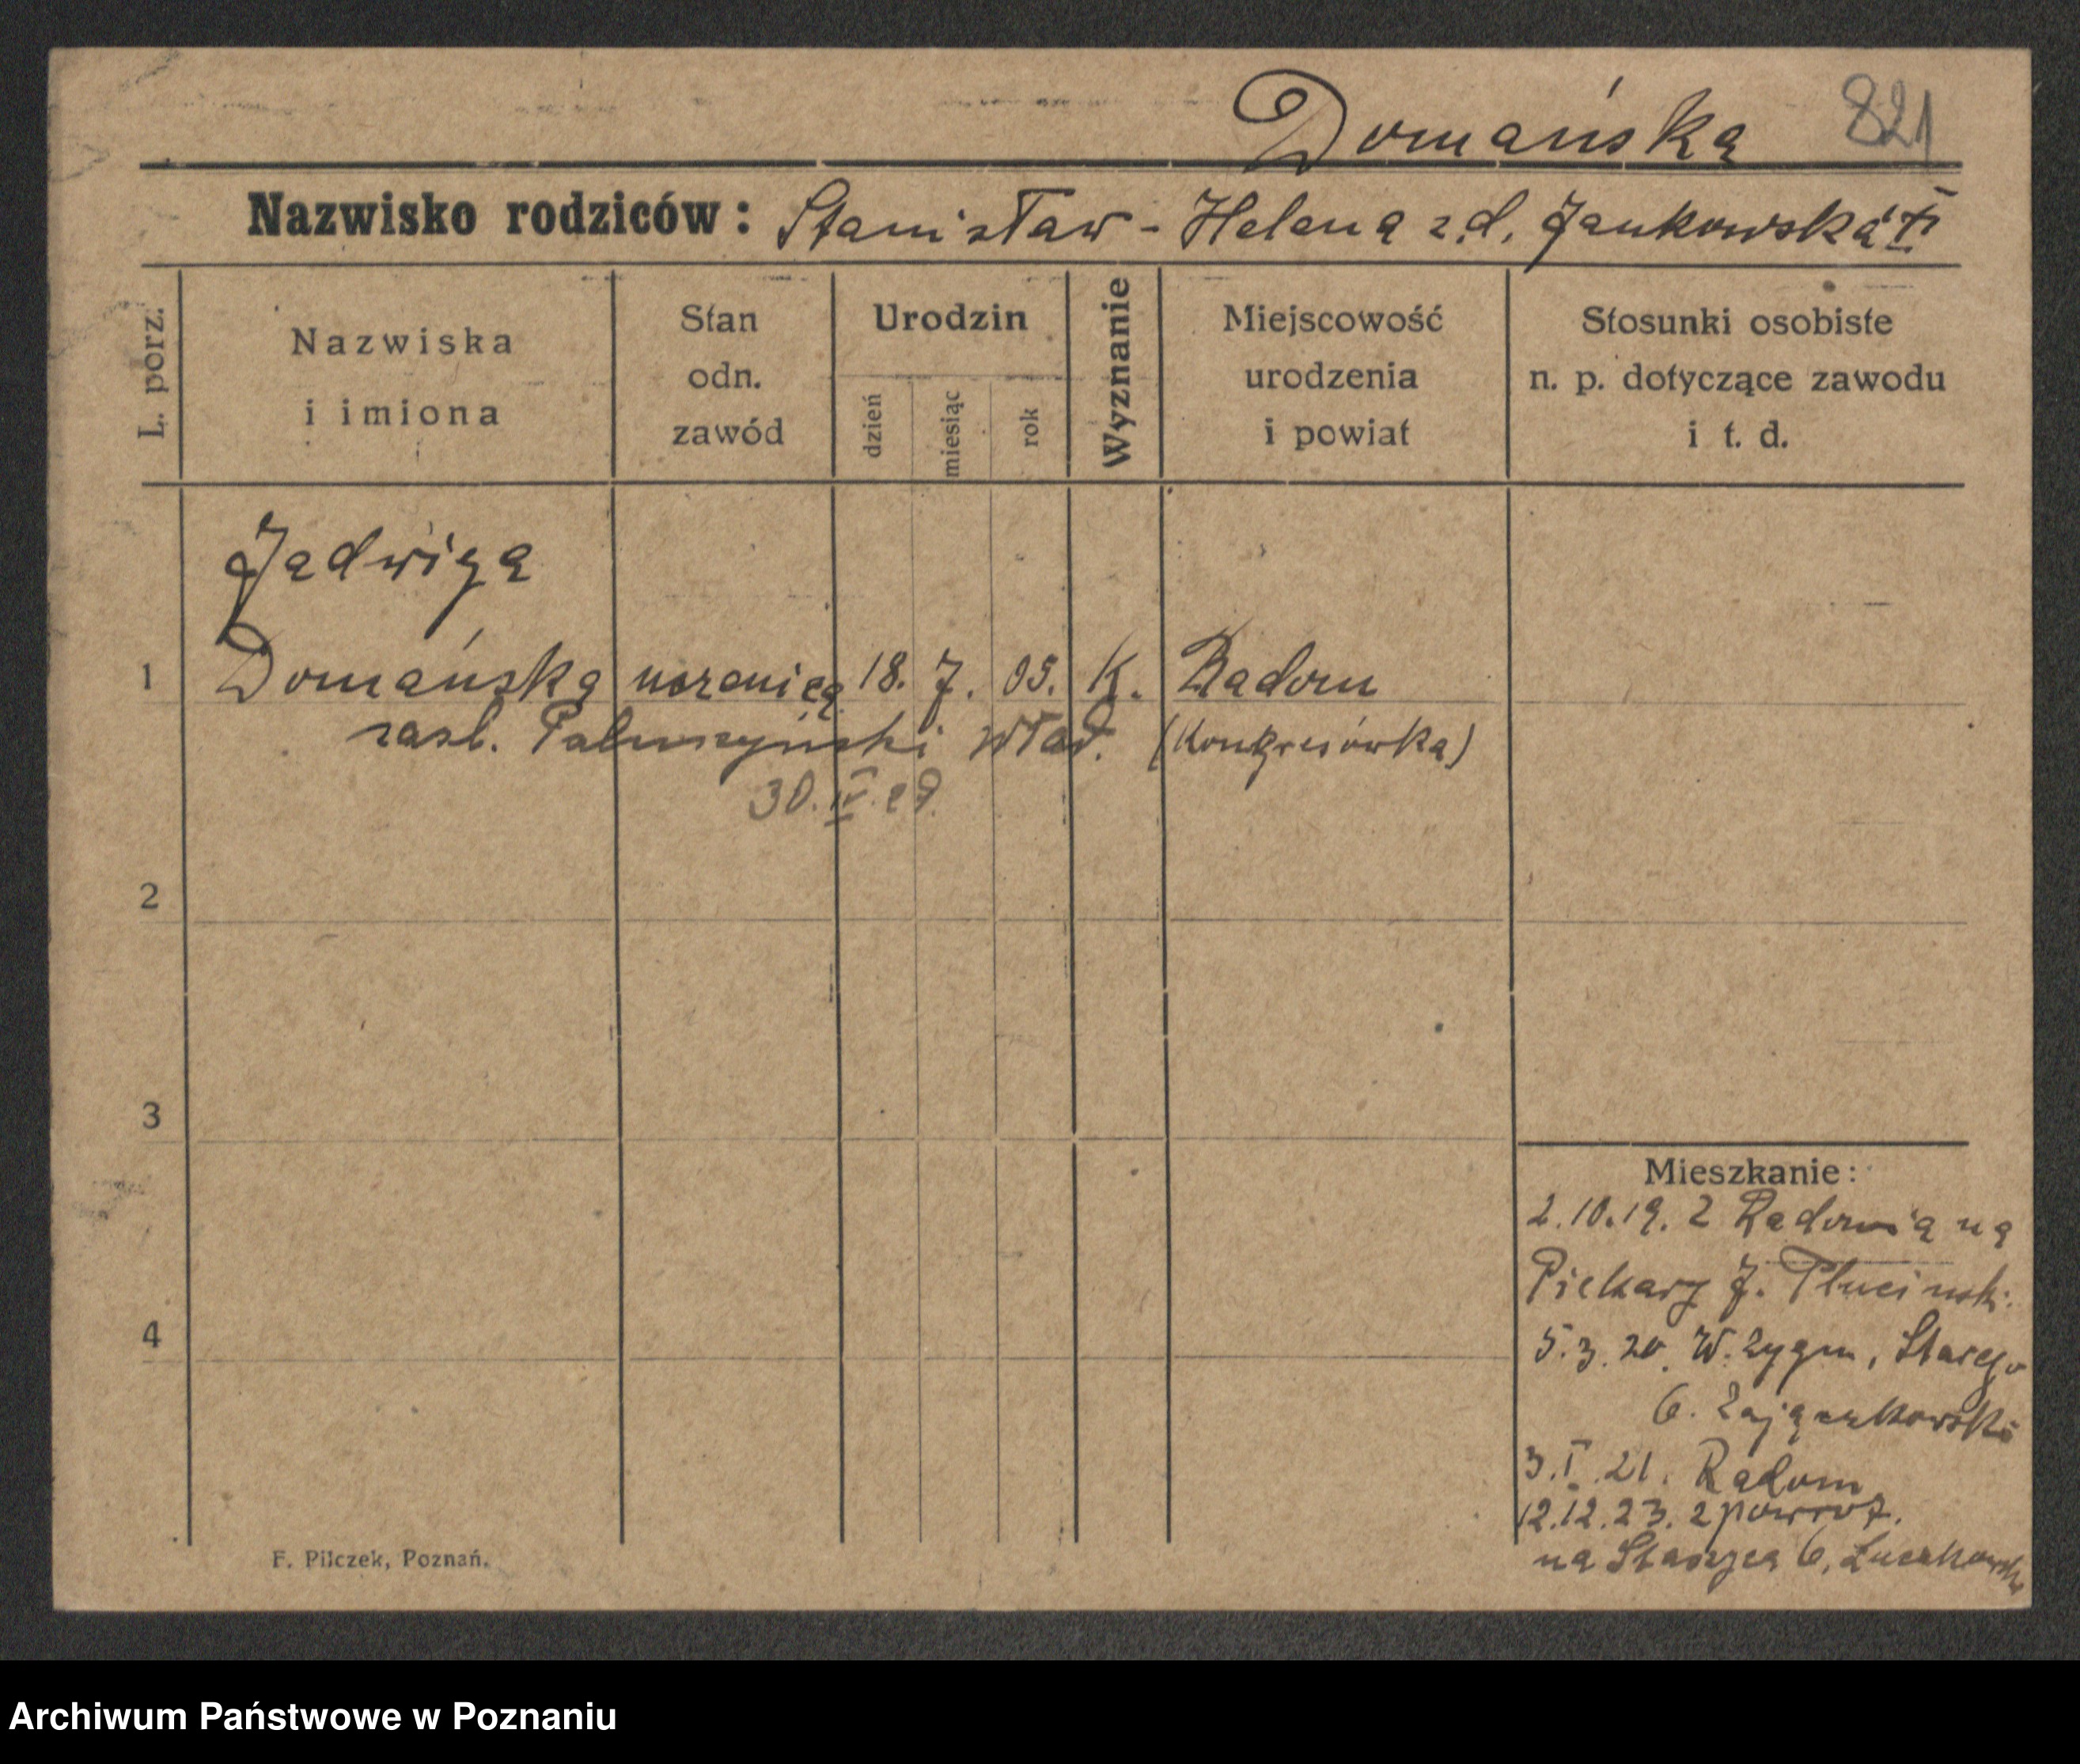 Domańska 821
Nazwisko rodziców: Stanisław - Helena z.d. Jankowska
L. porz.
Nazwiska
i imiona
Stan
odn.
zawód
Urodzin
dzień
miesiąc
rok
Wyznanie
Miejscowość
urodzenia
i powiat
Stosunki osobiste
n. p. dotyczące zawodu
i t. d.
Jadwiga
1 Domańska uczenica 18. 7. 05. K. Radom
zaśl. Paluszyński Wład. (Kongresówka)
30. IV. 29.
2
3
4
Mieszkanie:
2.10.19. z Radomia na
Piekary 7. Tłuciński.
5.3.20. W. Zygm. Starego
6. Zajączkowski
3.I.21. Radom
12.12.23. z powrot.
na Staszyca 6,
F. Pilczek, Poznań.
Archiwum Państwowe w Poznaniu